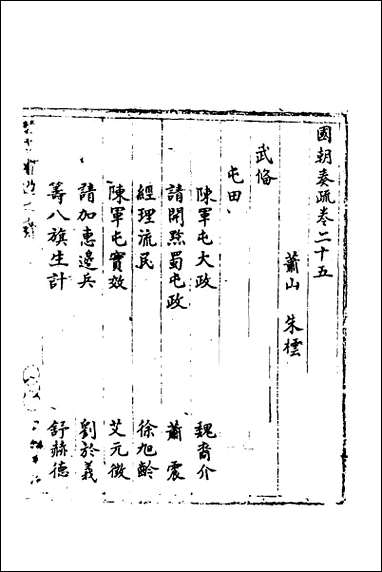 國朝奏疏卷二十五
蕭山 朱橒
武偹
屯田
陳軍屯大政 魏裔介
請開黔蜀屯政 蕭震
經理流民 徐旭齡
陳軍屯實效 艾元徵
請加惠邊兵 劉於義
籌八旗生計 舒赫德